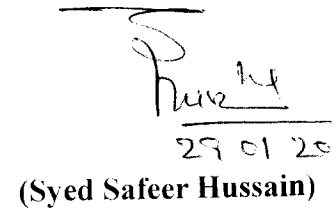 29 01 20
(Syed Safeer Hussain)